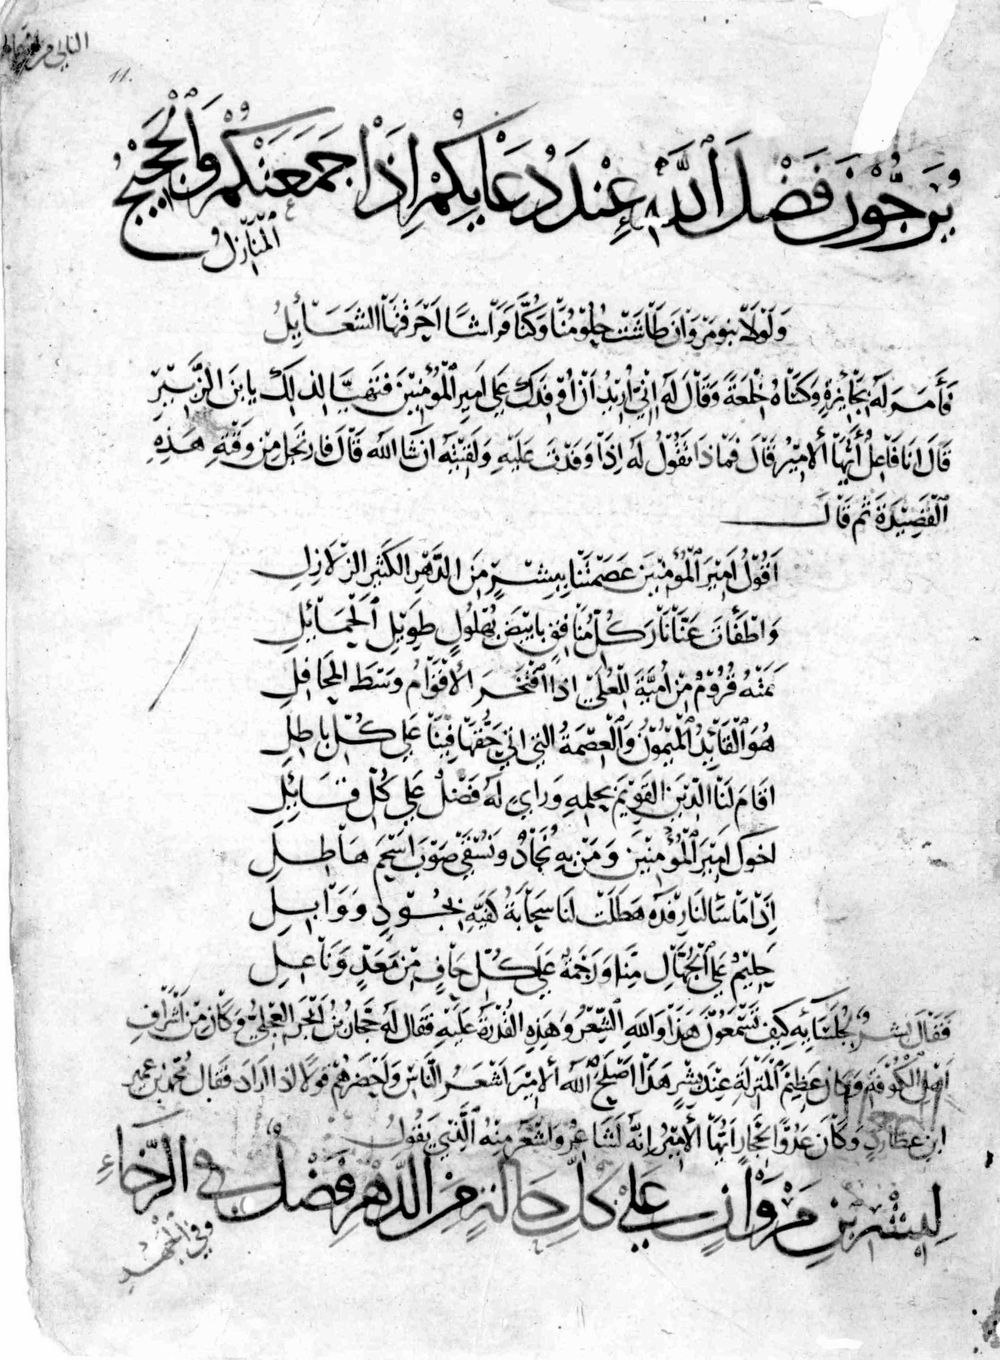 11.
يَرجُّونَ فَضْلَ اللَّهِ عِنْدَ دُعَائِكُم إِذَا جَمَعَنْكُمْ وَالحَجِيجَ
المَنَازِلُ
وَلَوْلَا بنو مَرْوَانَ طَاشَتْ حُلُوْمُنَا وَكُنَّا فَرَاشًا أَحْرَقَتْهَا الشَّعَايِلُ
فَأَمَرَ لَهُ بِجَايِزَةٍ وَكَسَاهُ خِلْعَةً وَقَالَ لَهُ إِنِّي أُرِيدُ أَنْ أُوفِدَكَ عَلى أَمِيرِ الْمُؤْمِنِيْنَ فَتَهَيَّا لِذَلِكَ يا بنَ الزَّبِيرِ
قَالَ أَنَا فَاعِلٌ أَيُّهَا الأَمِيْرُ قَالَ فَمَاذَا تَقُوْلُ لَهُ إِذَا وَفَدْتَ عَلَيْهِ وَلَقِيْتَهُ انْ شَا الله قَالَ فَارتَجَلَ مِنْ وَقْتِهِ هَذِهِ
الْقَصِيْدَةَ ثُم قَالَ
أَقُوْلُ أَمِيرَ الْمُؤْمِنِينَ عَصَمْتَنَا بِبِشْرٍ مِنَ الدَّهْرِ الكَثيرِ الزَّلَازِلِ
وَاطْفَأْتَ عَنَّا نَارَ كُلِّ مُنَافِقٍ بِأَبْيَضَ بُهْلُولٍ طَوِيْلِ الحَمَائِلِ
نَمَتْهُ قُرُوْمٌ مِنْ أُمَيَّةَ لِلْعُلَى إِذَا افْتَخَرَ الأَقْوَامُ وَسْطَ المَحَافِلِ
هُوَ الْقَايِدُ الْمَيْمُوْنُ وَالْعِصْمَةُ الَّتِي أَتَى حَقُّهَا فِيْنَا عَلَى كُلِّ بَاطِلِ
أَقَامَ لَنَا الدِّيْنَ القَوِيْمَ بِحِلْمِهِ وَرَايٍ لَهُ فَضْلٌ عَلَى كُلِّ قَائِلِ
أَخُوْكَ أَمِيْرَ الْمُؤْمِنِيْنَ وَمَنْ بِهِ نُجَادُ وَنُسْقَى صَوْبَ أَسْحَمَ هَاطِلِ
إِذَا مَا سَأَلْنَا رِفْدَهُ هَطَلَتْ لَنَا سَحَابَةُ كَفَّيْهِ بِجُوْدٍ وَوَابِلِ
حَلِيْمٌ عَلَى الْجُهَّالِ مِنَّا وَرَحْمَةٌ عَلَى كُلِّ حَافٍ مِنْ مَعَدٍّ وَنَاعِلِ
فَقَالَ بِشْرٌ لِجُلَسَائِهِ كَيْفَ تَسْمَعُوْنَ هَذَا وَاللهِ الشِّعْرُ وَهَذِهِ الْقُدْرَةُ عَلَيْهِ فَقَالَ لَهُ حَجَّارُ بْنُ أَبْجَرَ الْعِجْلِيُّ وَكَانَ مِنْ أَشْرَافِ
أَهْلِ الْكُوْفَةِ وَكَانَ عَظِيْمَ الْمَنْزِلَةِ عِنْدَ بِشْرٍ هَذَا أَصْلَحَ اللهُ الأَمِيْرَ أَشْعَرُ النَّاسِ وَأَحْضَرُهُمْ قَوْلًا إِذَا أَرَادَ فَقَالَ مُحَمَّدُ بْنُ عُمَيرِ
ابنِ عُطَارِدٍ وَكَانَ عَدُوًّا لِحَجَّارٍ أَيُّهَا الأَمِيْرُ إِنَّهُ لَشَاعِرٌ وَأَشْعَرُ مِنْهُ الَّذِي يَقُوْلُ
لِبِشْرِ بْنِ مَرْوَانٍ عَلَى كُلِّ حَالَةٍ مِنَ الدَّهْرِ فَضْلٌ فِي الرَّخَاءِ
وَفِي الْجَهْدِ